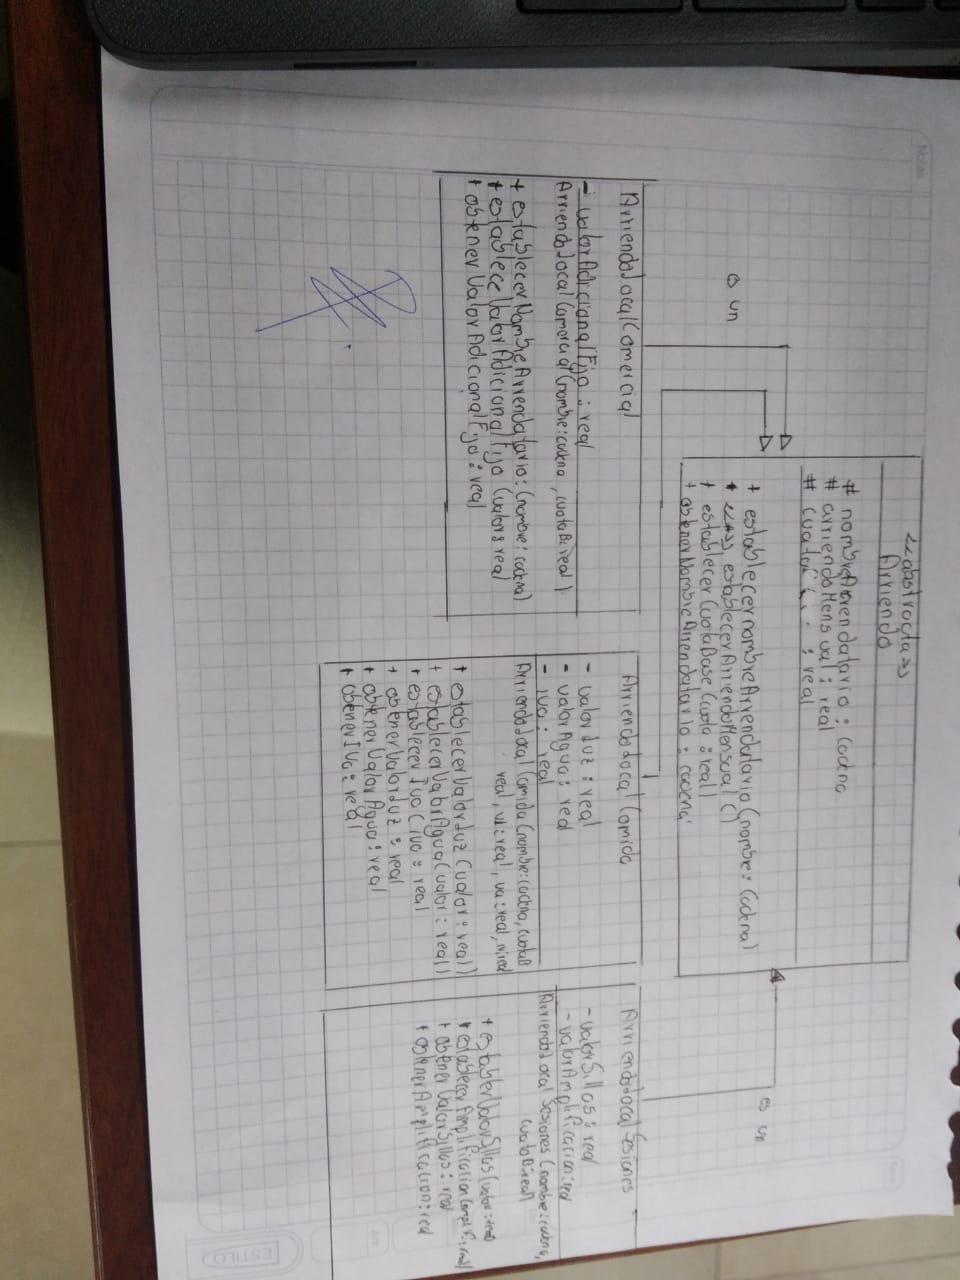 <<abstracta>>
Arriendo
# nombreArrendatario : cadena
# arriendoMensual : real
# cuota : real
+ establecernombreArrendatario (nombre : cadena)
+ establecerArriendoMensual ()
+ establecer CuotaBase (cuota : real)
+ obtenerNombreArrendatario : cadena
es un
es un
ArriendoLocalComercial
- valorAdicionalFijo : real
ArriendoLocalComercial (nombre : cadena, cuotaB : real)
+ establecerNombreArrendatario : (nombre : cadena)
+ establece ValorAdicionalFijo (valor : real
+ obtener ValorAdicionalFijo : real
ArriendoLocalComida
- valorLuz : real
- valorAgua : real
- iva : real
ArriendoLocalComida (nombre : cadena, cuotaB
real, vl : real, va : real,
+ establecerValorLuz (valor : real)
+ establecerValorAgua (valor : real)
+ establecer Iva (iva : real
+ obtenerValorLuz : real
+ obtenerValorAgua : real
+ obtenerIva : real
ArriendoLocalSesiones
- valorSillas : real
- valorAmplificacion : real
ArriendoLocal Sesiones (nombre : cadena,
cuotaB : real)
+ establerValorSillas (valor : real)
+ establecerAmplificacion
+ obtener ValorSillas : real
+ obtenerAmplificacion : real
ESTILO